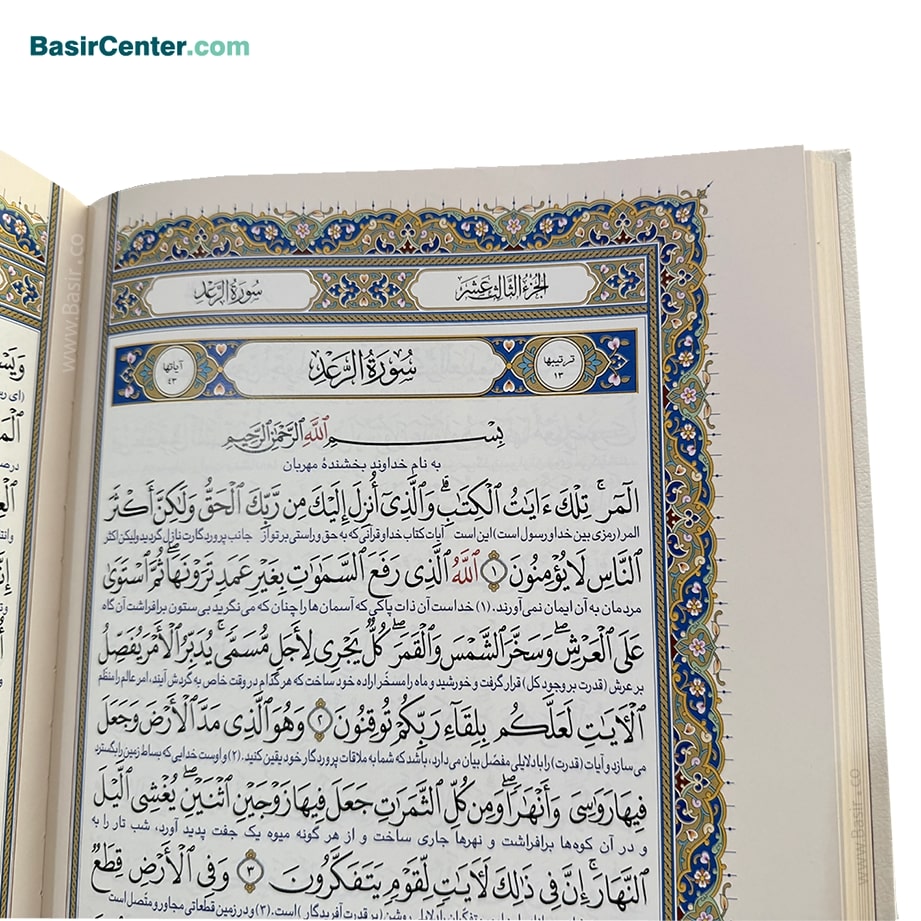 BasirCenter.com
الجزء الثالث عشر
سورة الرعد
ترتيبها ١٣
سُورَةُ الرَّعْدِ
آیاتها ٤٣
بِسْمِ اللَّهِ الرَّحْمَٰنِ الرَّحِيمِ
به نام خداوند بخشندهٔ مهربان
الٓمٓرۚ تِلْكَ ءَايَٰتُ الْكِتَٰبِۗ وَالَّذِىٓ أُنزِلَ إِلَيْكَ مِن رَّبِّكَ الْحَقُّ وَلَٰكِنَّ أَكْثَرَ
المر (رمزی بین خدا و رسول است) این است آیات کتاب خدا و قرآنی که به حق و راستی بر تو از جانب پروردگارت نازل گردید ولیکن اکثر
النَّاسِ لَا يُؤْمِنُونَ ١ اللَّهُ الَّذِى رَفَعَ السَّمَٰوَٰتِ بِغَيْرِ عَمَدٍ تَرَوْنَهَاۖ ثُمَّ اسْتَوَىٰ
مردمان به آن ایمان نمی‌آورند. (۱) خداست آن ذات پاکی که آسمان‌ها را چنان که می‌نگرید بی‌ستون برافراشت آن‌گاه
عَلَى الْعَرْشِۖ وَسَخَّرَ الشَّمْسَ وَالْقَمَرَۖ كُلٌّ يَجْرِى لِأَجَلٍ مُّسَمًّىۚ يُدَبِّرُ الْأَمْرَ يُفَصِّلُ
بر عرش (قدرت بر وجود کل) قرار گرفت و خورشید و ماه را مسخّر اراده خود ساخت که هر کدام در وقت خاص به گردش آیند، امر عالم را منظم
الْءَايَٰتِ لَعَلَّكُم بِلِقَآءِ رَبِّكُمْ تُوقِنُونَ ٢ وَهُوَ الَّذِى مَدَّ الْأَرْضَ وَجَعَلَ
می‌سازد و آیات (قدرت) را با دلایلی مفصّل بیان می‌دارد، باشد که شما به ملاقات پروردگار خود یقین کنید. (۲) و اوست خدایی که بساط زمین را بگسترد
فِيهَا رَوَٰسِىَ وَأَنْهَٰرًاۖ وَمِن كُلِّ الثَّمَرَٰتِ جَعَلَ فِيهَا زَوْجَيْنِ اثْنَيْنِۖ يُغْشِى الَّيْلَ
و در آن کوه‌ها برافراشت و نهرها جاری ساخت و از هر گونه میوه یک جفت پدید آورد، شب تار را به
النَّهَارَۚ إِنَّ فِى ذَٰلِكَ لَءَايَٰتٍ لِّقَوْمٍ يَتَفَكَّرُونَ ٣ وَفِى الْأَرْضِ قِطَعٌ
(بر قدرت آفریدگار) است. (۳) و در زمین قطعاتی مجاور و متصل است
www.Basir.co
www.Basir.co